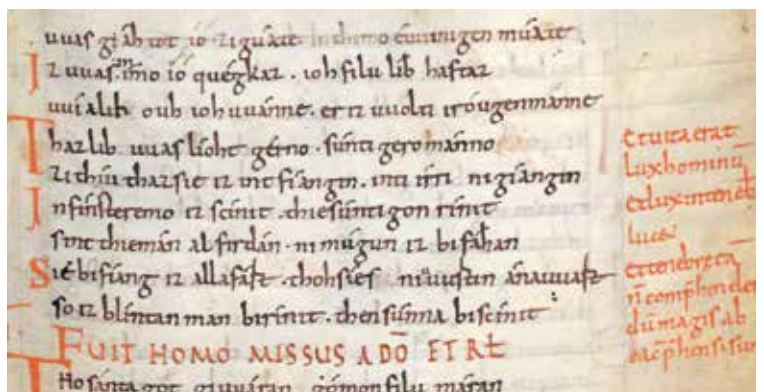 uuas giáhtot io zi gúate in themo éuuinigen múate
Iz uuas in imo io quégkaz . ioh filu lib haftaz
uuialih ouh ioh uuánne . er iz uuolti irougen mánne
Thaz lib uuas lioht gérno . súntigero mánno
zi thiu thaz sie iz intfiangin . inti irri ni giangin
In finsteremo iz scinit . thie súntigon rinit
sint thie mán al firdán . ni múgun iz bifáhan
Sie bifiang iz alla fart . thoh sies ni uurtin ánauuart
so iz blintan man birinit . then súnna biscinit
FUIT HOMO MISSUS A DŌ ET RL
Tho santa got giuuáran gómon filu máran
Et uita erat
lux hominū
et lux in teneb
luc&
et tenebre eā
n̄ comp̄hender
dū magis ab
ea